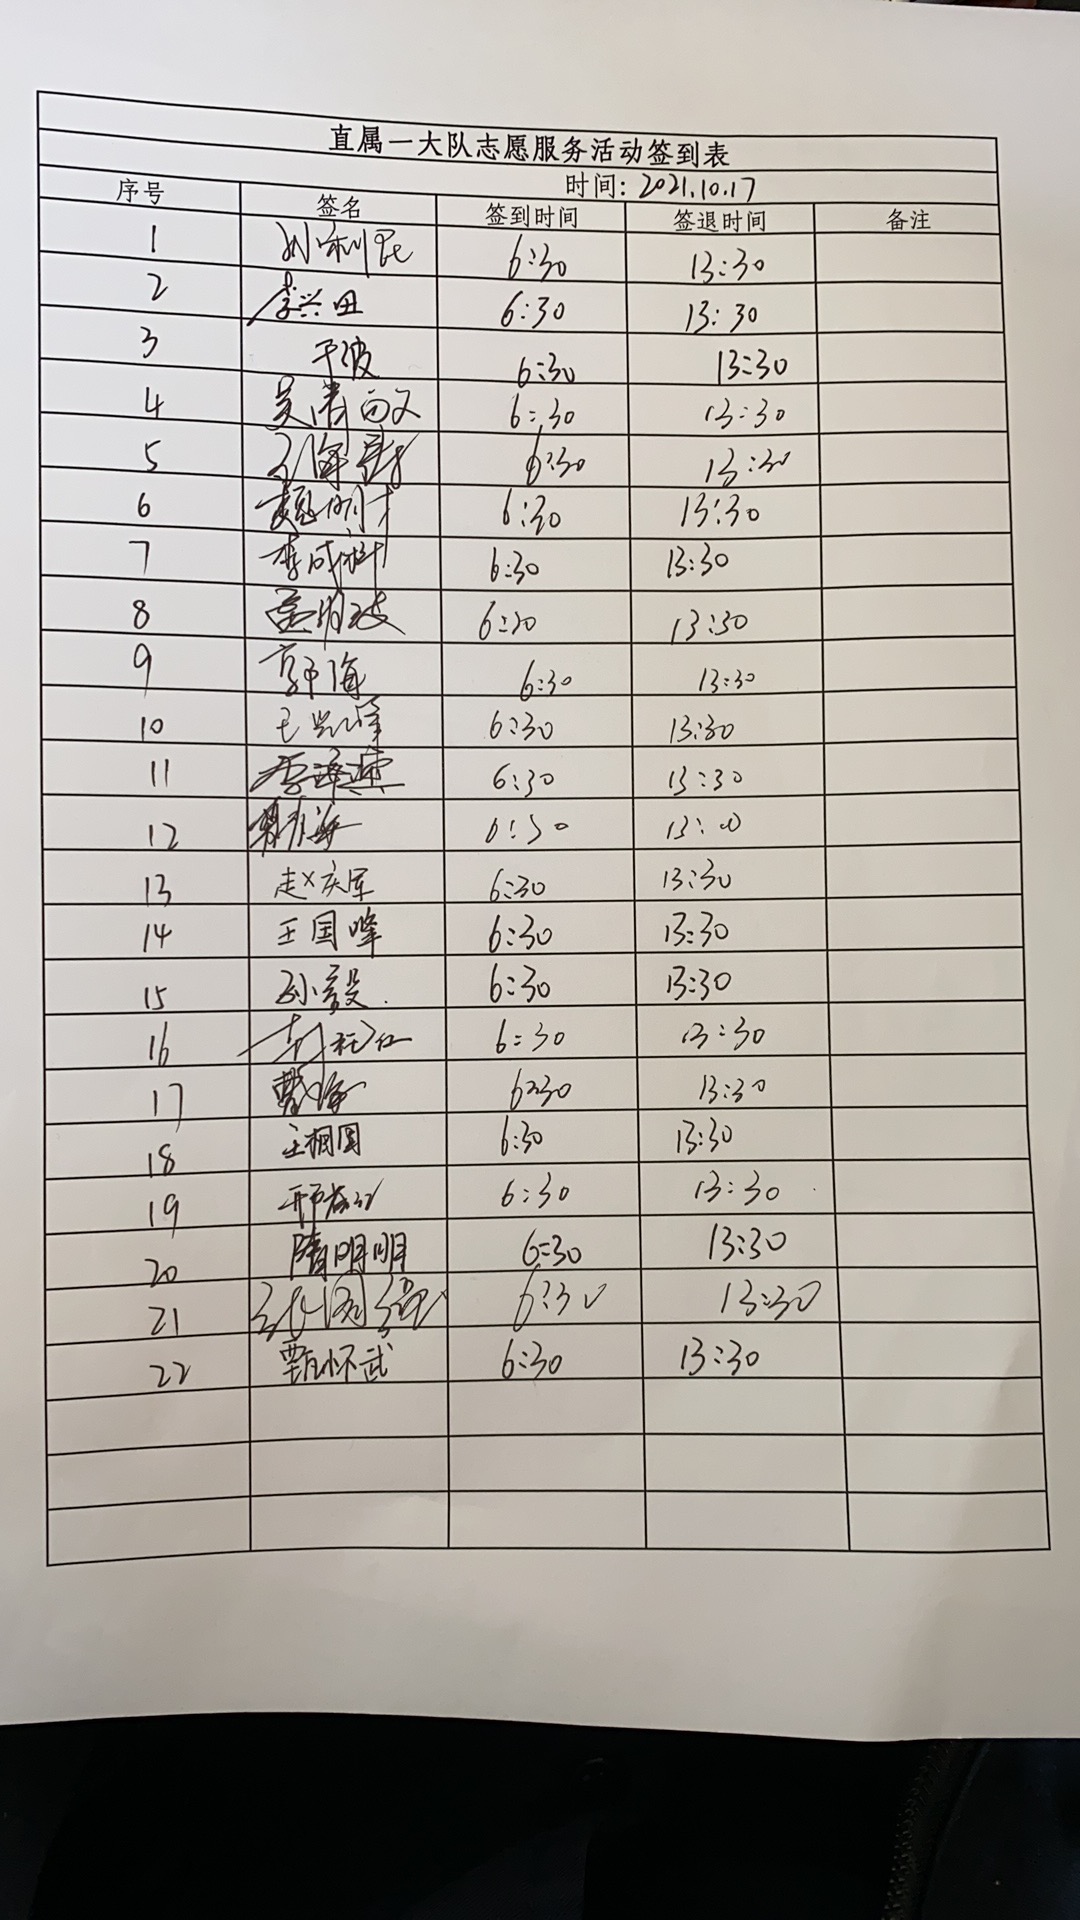 直属一大队志愿服务活动签到表
时间: 2021.10.17
序号 签名 签到时间 签退时间 备注
1 6:30 13:30
2 李兴田 6:30 13:30
3 于波 6:30 13:30
4 6:30 13:30
5 6:30 13:30
6 6:30 13:30
7 6:30 13:30
8 6:30 13:30
9 郭海 6:30 13:30
10 6:30 13:30
11 6:30 13:30
12 6:30
13 赵庆军 6:30 13:30
14 王国峰 6:30 13:30
15 孙毅 6:30 13:30
16 6:30 13:30
17 6:30 13:30
18 王桐国 6:30 13:30
19 6:30 13:30
20 隋明明 6:30 13:30
21 6:30 13:30
22 甄怀武 6:30 13:30